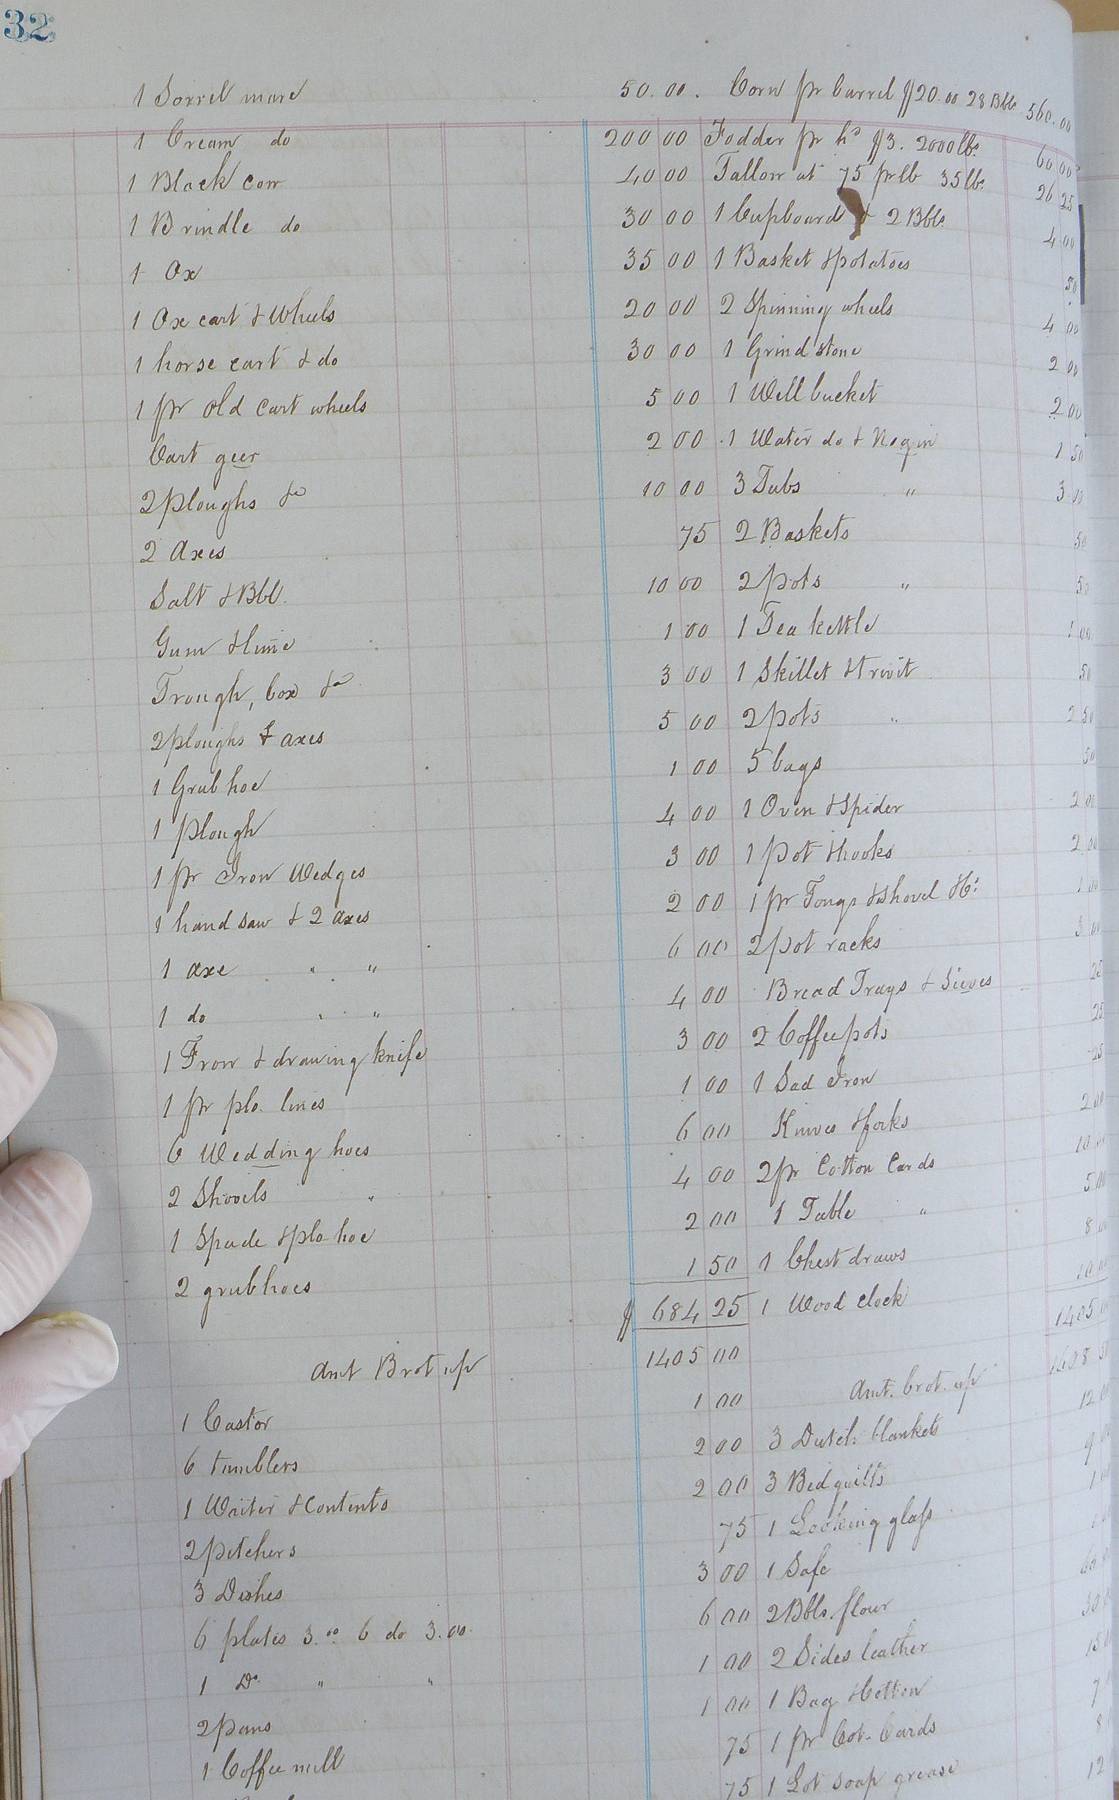 32
1 Sorrel mare 50.00. Corn pr barrel $20.00 28 Bbls 560.00
1 Cream do 200 00 Fodder pr hd $3. 2000 lbs 60 00
1 Black cow 40 00 Tallow at 75 pr lb 35 lbs 26 25
1 Brindle do 30 00 1 Cupboard & 2 Bbls 4 00
1 Ox 35 00 1 Basket & potatoes 50
1 Ox cart & Wheels 20 00 2 Spinning wheels 4 00
1 horse cart & do 30 00 1 Grind stone 2 00
1 pr old cart wheels 5 00 1 Well bucket 2 00
Cart geer 2 00 1 Water do & Nogin 1 50
2 Ploughs &c 10 00 3 Tubs " 3 00
2 Axes 75 2 Baskets 50
Salt & Bbl. 10 00 2 pots " 50
Gum & lime 1 00 1 Tea kettle 1 00
Trough, box &c 3 00 1 Skillet & trivit 50
2 ploughs & axes 5 00 2 pots " 2 50
1 Grub hoe 1 00 5 bags 50
1 plough 4 00 1 Oven & Spider 2 00
1 pr Iron Wedges 3 00 1 pot & hooks 2 00
1 hand saw & 2 axes 2 00 1 pr Tongs & shovel &c: 1 00
1 axe " " 6 00 2 pot racks 3 00
1 do " " 4 00 Bread Trays & Sieves 25
1 Frow & drawing knife 3 00 2 Coffee pots 25
1 pr plo. lines 1 00 1 Sad Iron 25
6 Wedding hoes 6 00 Knives & forks 2 00
2 Shovels " 4 00 2 pr Cotton Cards 10
1 Spade & plo hoe 2 00 1 Table " 5 00
2 grubhoes 1 50 1 Chest draws 8
$ 684 25 1 Wood clock 10 00
1405
Amt Brot up 1405 00 1428
1 Castor 1 00 Amt. brot. up
6 tumblers 2 00 3 Dutch blankets 12
1 Waiter & Contents 2 00 3 Bed quilts 9
2 pitchers 75 1 Looking glass 1
3 Dishes 3 00 1 Safe
6 plates 3.00 6 do 3.00. 6 00 2 Bbls. flour
1 Do " " 1 00 2 Sides leather 30
2 pans 1 00 1 Bag & Cotton 15
1 Coffee mill 75 1 pr Cot. Cards 7
75 1 Lot soap grease 12